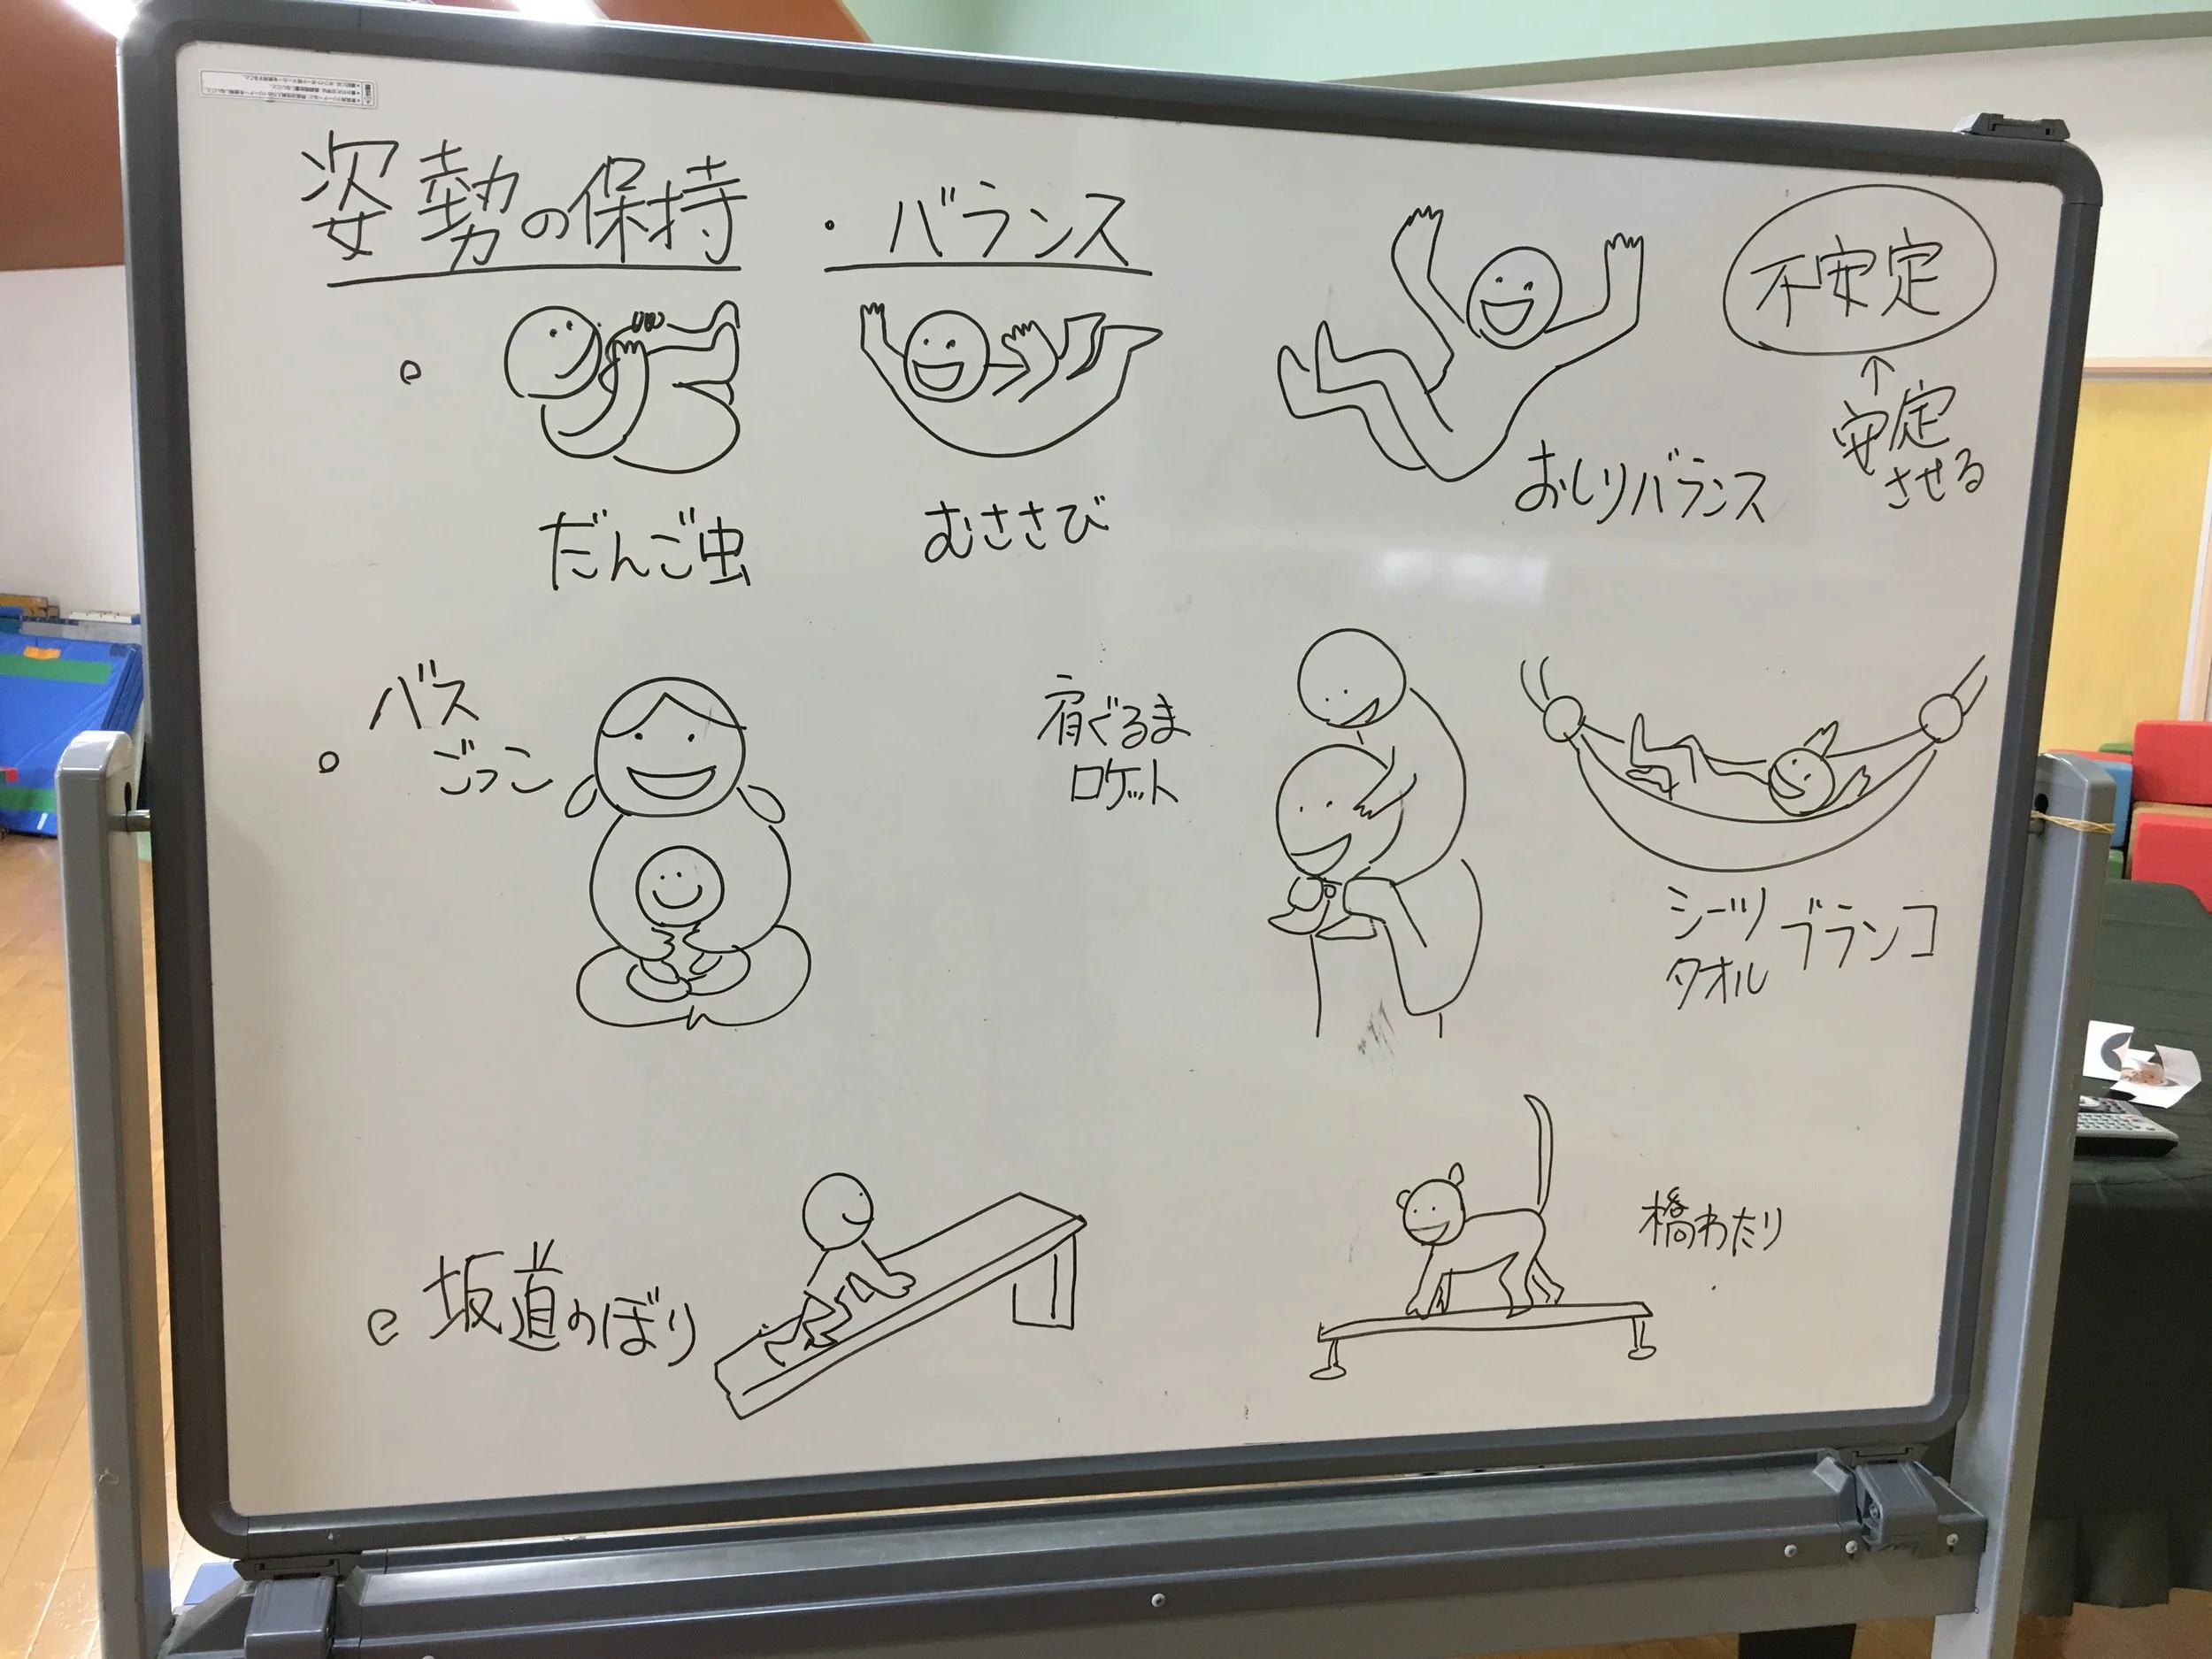 姿勢の保持・バランス
不安定
↑
安定
させる
だんご虫
むささび
おしりバランス
バス
ごっこ
肩ぐるま
ロケット
シーツ
タオル
ブランコ
坂道のぼり
橋わたり